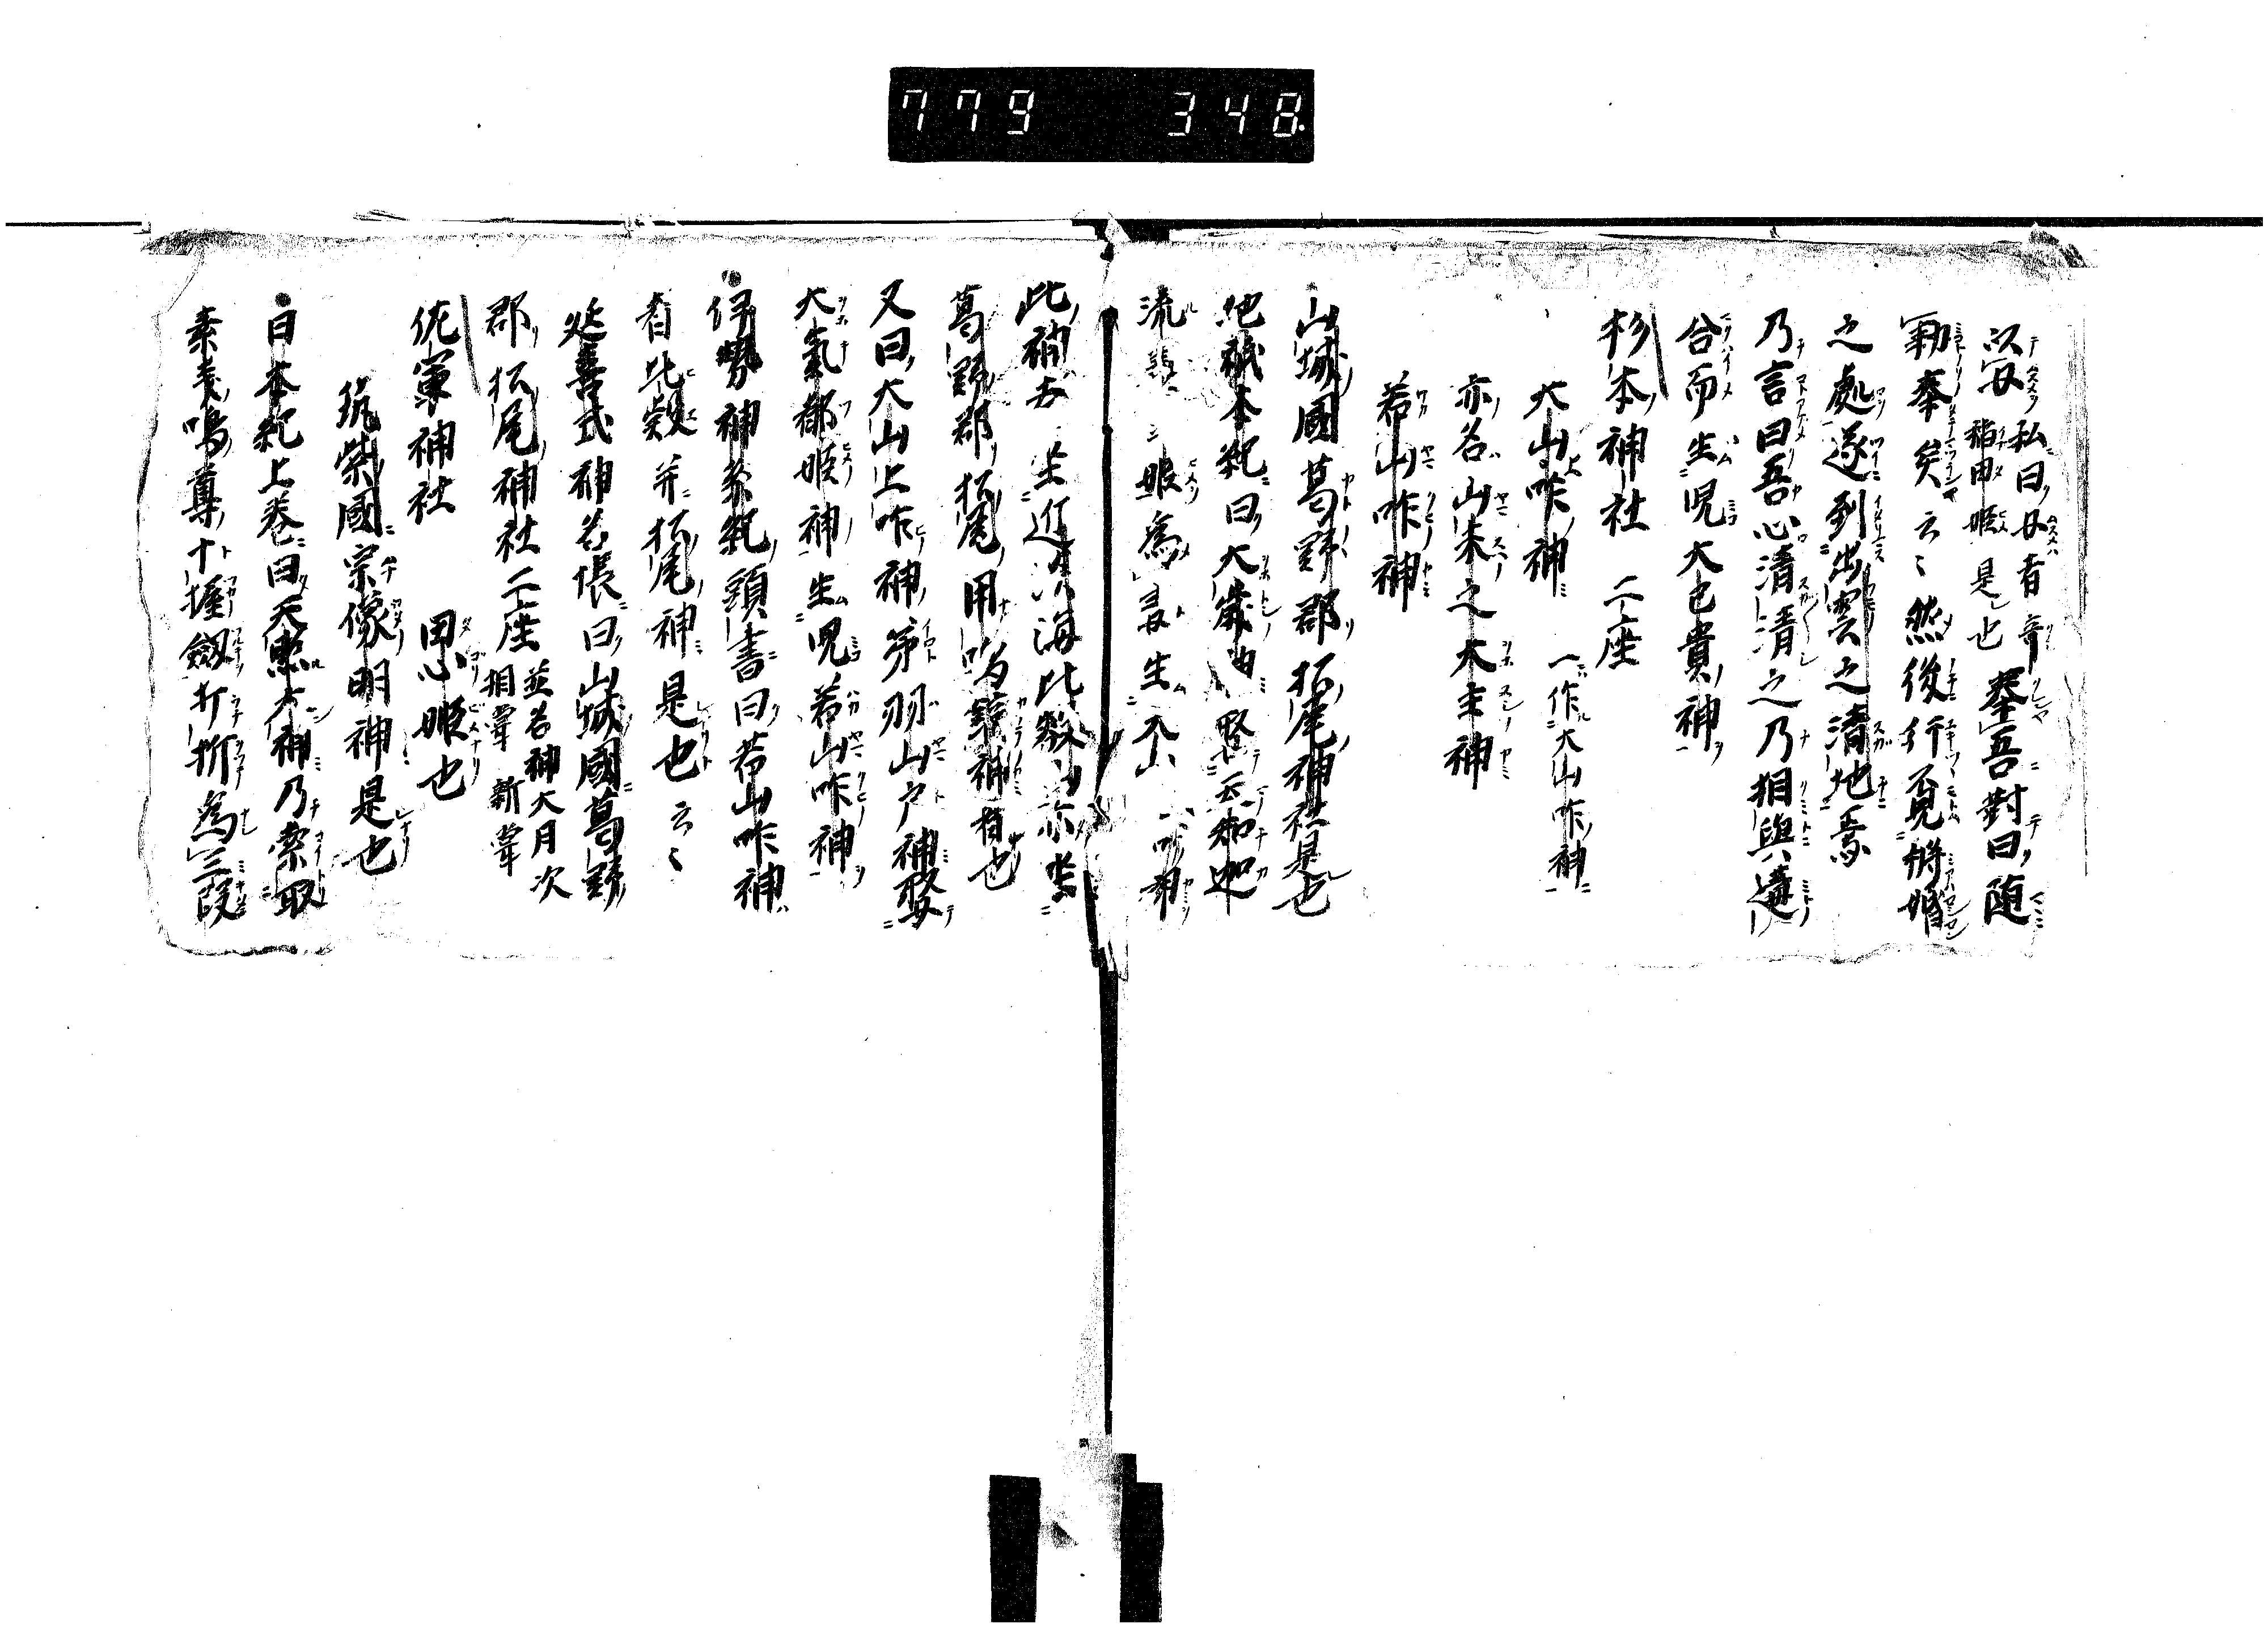 779 348.
以女 私曰女者奇
稲田姫是也 奉吾對曰随
勅奉矣云々然後行覓將婚
之處遂到出雲之清地焉
乃言曰吾心清清之乃相與遘
合而生児大己貴神
杉本神社 二座
大山咋神 一作大山咋神
亦名山末之大主神
若山咋神
山城國葛野郡松尾神社是也
地祇本紀曰大歳 娶 云 知迦
流 姫為妻生 山 神
此神者坐近淡海比叡山亦坐
葛野郡松尾用鳴鏑神者也
又曰大山上咋神弟羽山戸神娶
大氣都姫神生児若山咋神
伊勢神系紀頭書曰若山咋神
者比叡并松尾神是也云々
延喜式神名帳曰山城國葛野
郡松尾神社二座 並名神大月次
相嘗新嘗
佐軍神社 田心姫也
筑紫國宗像明神是也
日本紀上巻曰天照大神乃索取
素戔嗚尊十握劔打折為三段